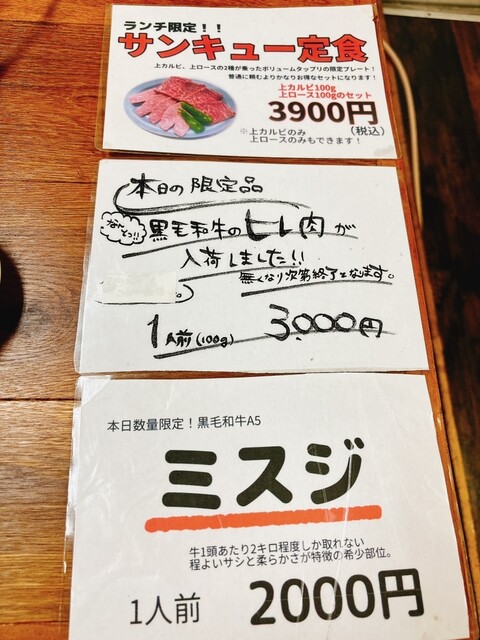 ランチ限定！！
サンキュー定食
上カルビ、上ロースの2種が乗ったボリュームタップリの限定プレート！
普通に頼むよりかなりお得なセットになります！
上カルビ100g
上ロース100gのセット
3900円
(税込)
※上カルビのみ
上ロースのみもできます！
本日の限定品
黒毛和牛のヒレ肉が
入荷しました!!
無くなり次第終了となります。
1人前(100g) 3,000円
本日数量限定！黒毛和牛A5
ミスジ
牛1頭あたり2キロ程度しか取れない
程よいサシと柔らかさが特徴の希少部位。
1人前 2000円